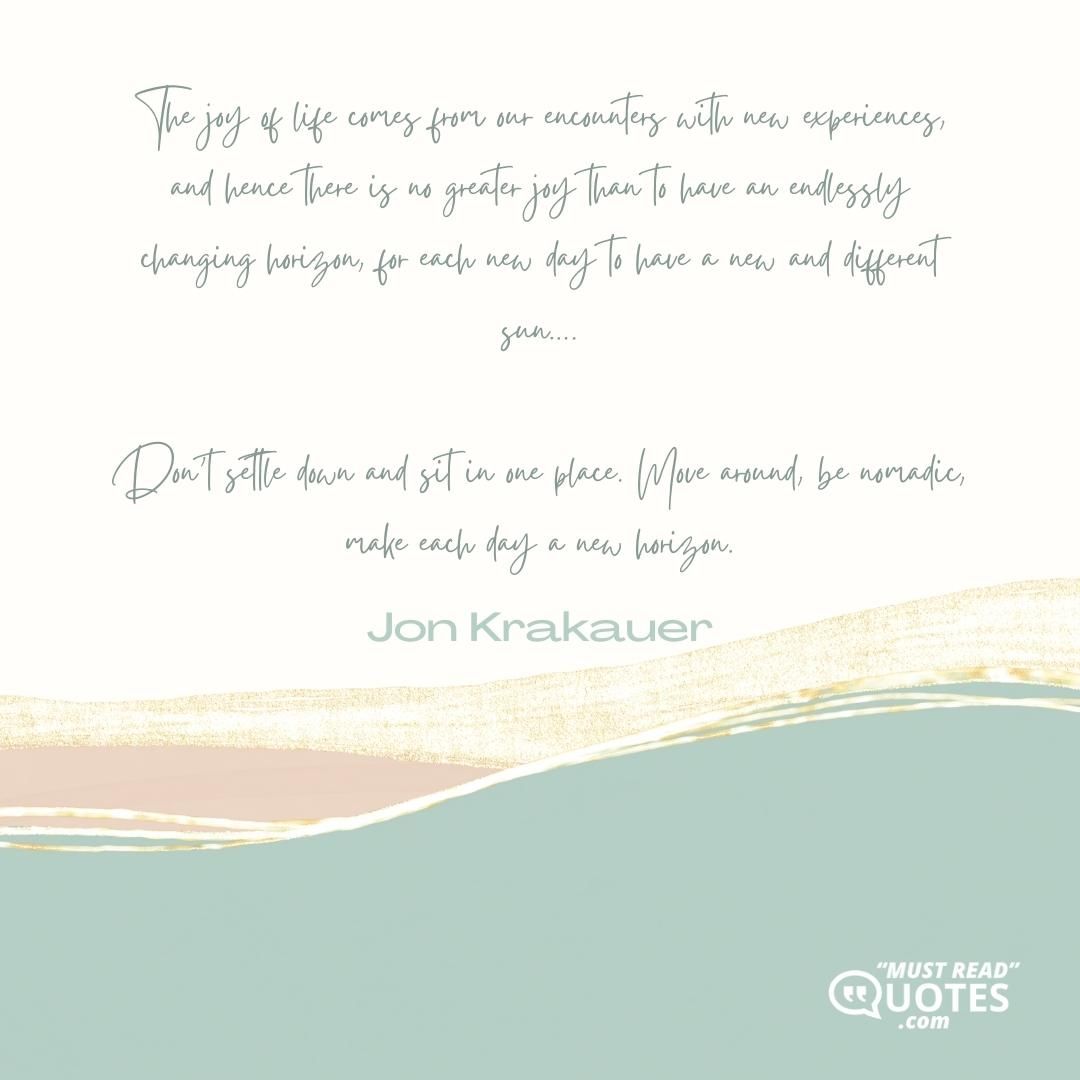 The joy of life comes from our encounters with new experiences,
and hence there is no greater joy than to have an endlessly
changing horizon, for each new day to have a new and different
sun....
Don't settle down and sit in one place. Move around, be nomadic,
make each day a new horizon.
Jon Krakauer
“MUST READ”
QUOTES
.com